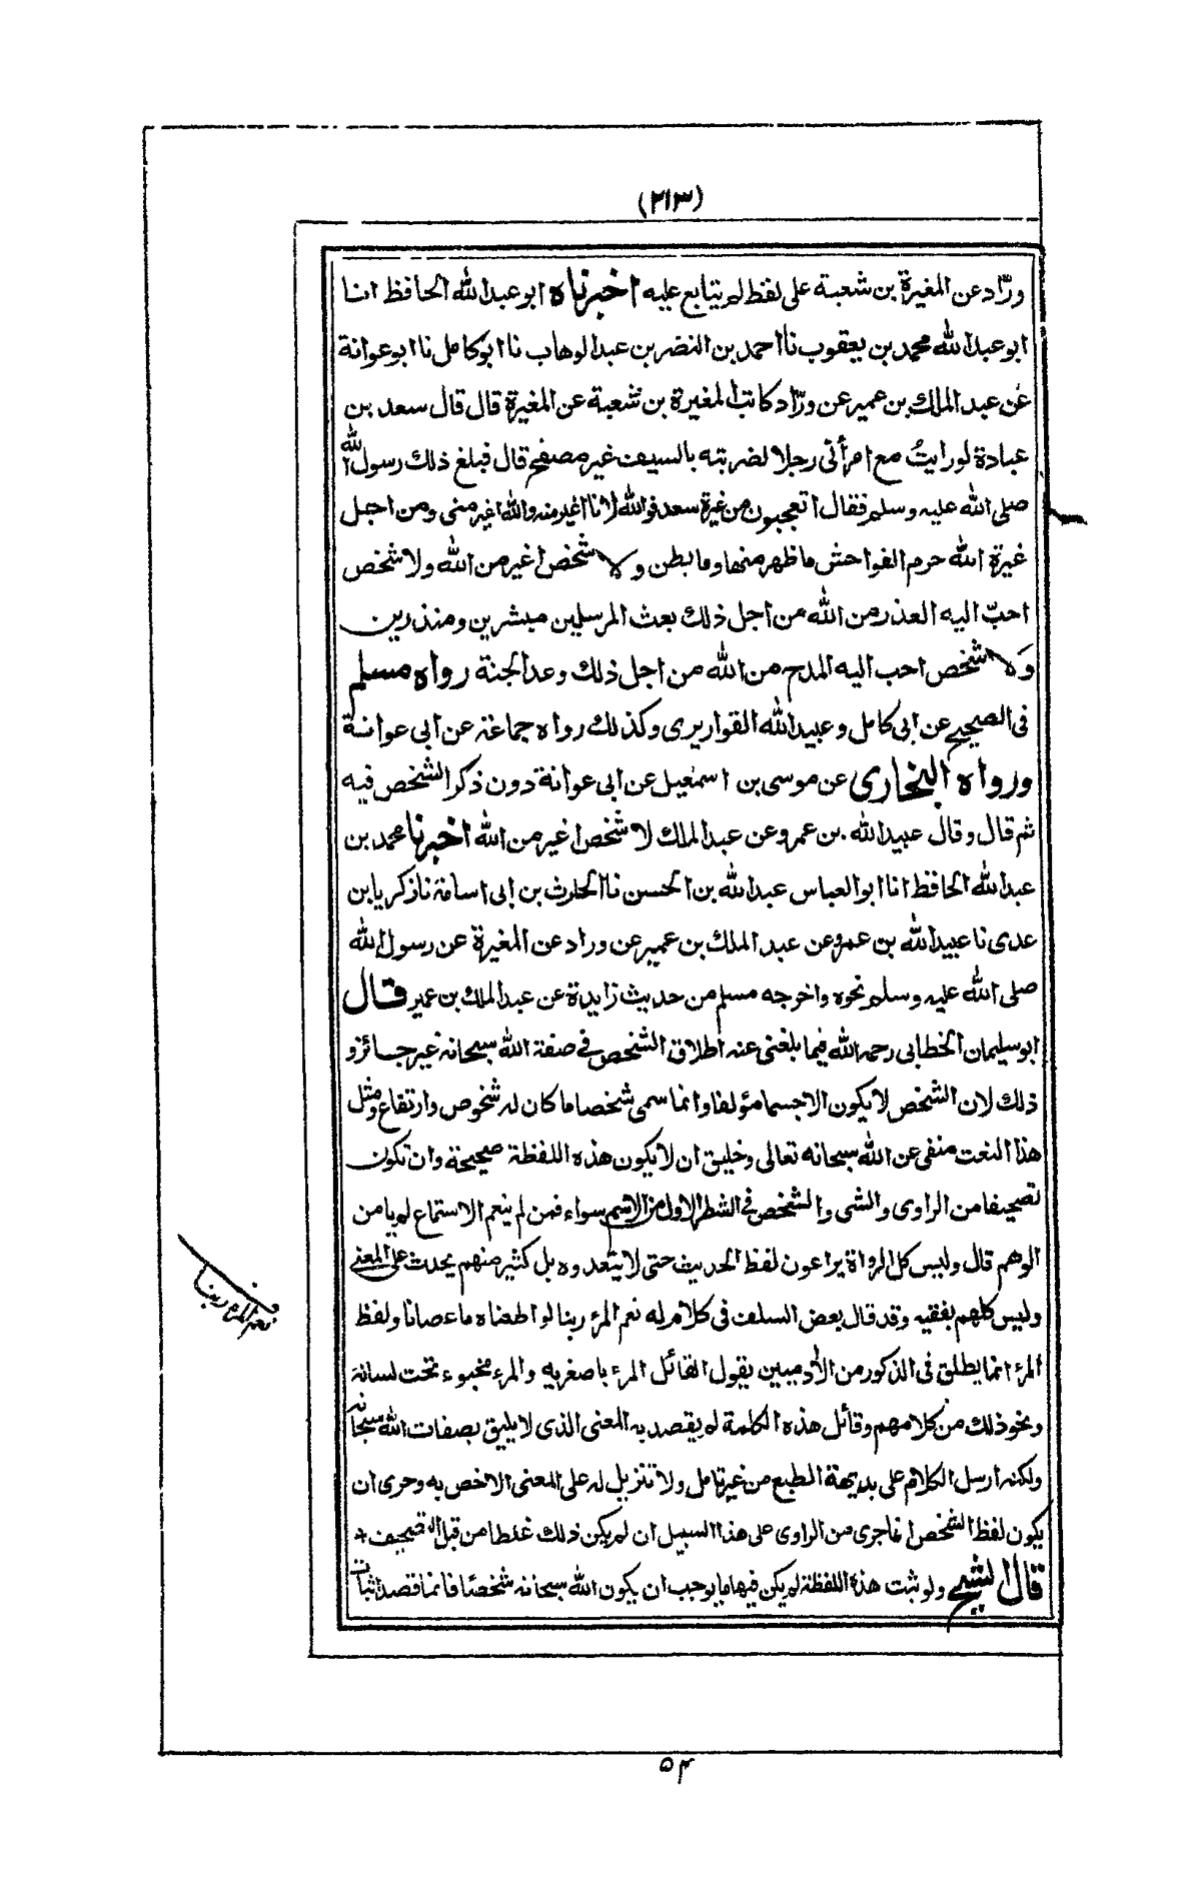 (٢١٣)
ورّاد عن المغيرة بن شعبة على لفظ لم يتابع عليه اخبرناه ابو عبد الله الحافظ انا
ابو عبد الله محمد بن يعقوب نا احمد بن النضر بن عبد الوهاب نا ابو كامل نا ابو عوانة
عن عبد الملك بن عمير عن ورّاد كاتب المغيرة بن شعبة عن المغيرة قال قال سعد بن
عبادة لو رايتُ مع امرأتى رجلا لضربته بالسيف غير مصفح قال فبلغ ذلك رسول الله
صلى الله عليه وسلم فقال اتعجبون من غيرة سعد فوالله لانا اغير منه والله اغير منى ومن اجل
غيرة الله حرم الفواحش ما ظهر منها وما بطن ولا شخص اغير من الله ولا شخص
احبّ اليه العذر من الله من اجل ذلك بعث المرسلين مبشرين ومنذرين
وَلا شخص احب اليه المدح من الله من اجل ذلك وعد الجنة رواه مسلم
فى الصحيح عن ابى كامل وعبيد الله القواريرى وكذلك رواه جماعة عن ابى عوانة
ورواه البخارى عن موسى بن اسمعيل عن ابى عوانة دون ذكر الشخص فيه
ثم قال وقال عبيد الله بن عمرو عن عبد الملك لا شخص اغير من الله اخبرنا محمد بن
عبد الله الحافظ انا ابو العباس عبد الله بن الحسن نا الحارث بن ابى اسامة نا زكريا بن
عدى نا عبيد الله بن عمرو عن عبد الملك بن عمير عن وراد عن المغيرة عن رسول الله
صلى الله عليه وسلم نحوه واخرجه مسلم من حديث زايدة عن عبد الملك بن عمير قال
ابو سليمان الخطابى رحمه الله فيما بلغنى عنه اطلاق الشخص فى صفة الله سبحانه غير جائز و
ذلك لان الشخص لا يكون الا جسما مؤلفا وانما سمى شخصا ما كان له شخوص وارتفاع ومثل
هذا النعت منفى عن الله سبحانه تعالى وخليق ان لا يكون هذه اللفظة صحيحة وان تكون
تصحيفا من الراوى والشى والشخص فى الشطر الاول من الاسم سواء فمن لم ينعم الاستماع لم يامن
الوهم قال وليس كل الرواة يراعون لفظ الحديث حتى لا يتعدوه بل كثير منهم يحدث على المعنى
وليس كلهم بفقيه وقد قال بعض السلف فى كلام له نعم المرء ربنا لو اطعناه ما عصانا ولفظ
المرء انما يطلق فى الذكور من الآدميين يقول القائل المرء باصغريه والمرء مخبوء تحت لسانه
ونحو ذلك من كلامهم وقائل هذه الكلمة لم يقصد به المعنى الذى لا يليق بصفات الله سبحانه
ولكنه ارسل الكلام على بديهة الطبع من غير تامل ولا تنزيل له على المعنى الاخص به وحرى ان
يكون لفظ الشخص انما جرى من الراوى على هذا السبيل ان لم يكن ذلك غلطا من قبل التصحيف +
قال الشيخ ولو ثبت هذه اللفظة لم يكن فيها ما يوجب ان يكون الله سبحانه شخصًا فانما قصد اثبات
نعم المرء ربنا
٥٤